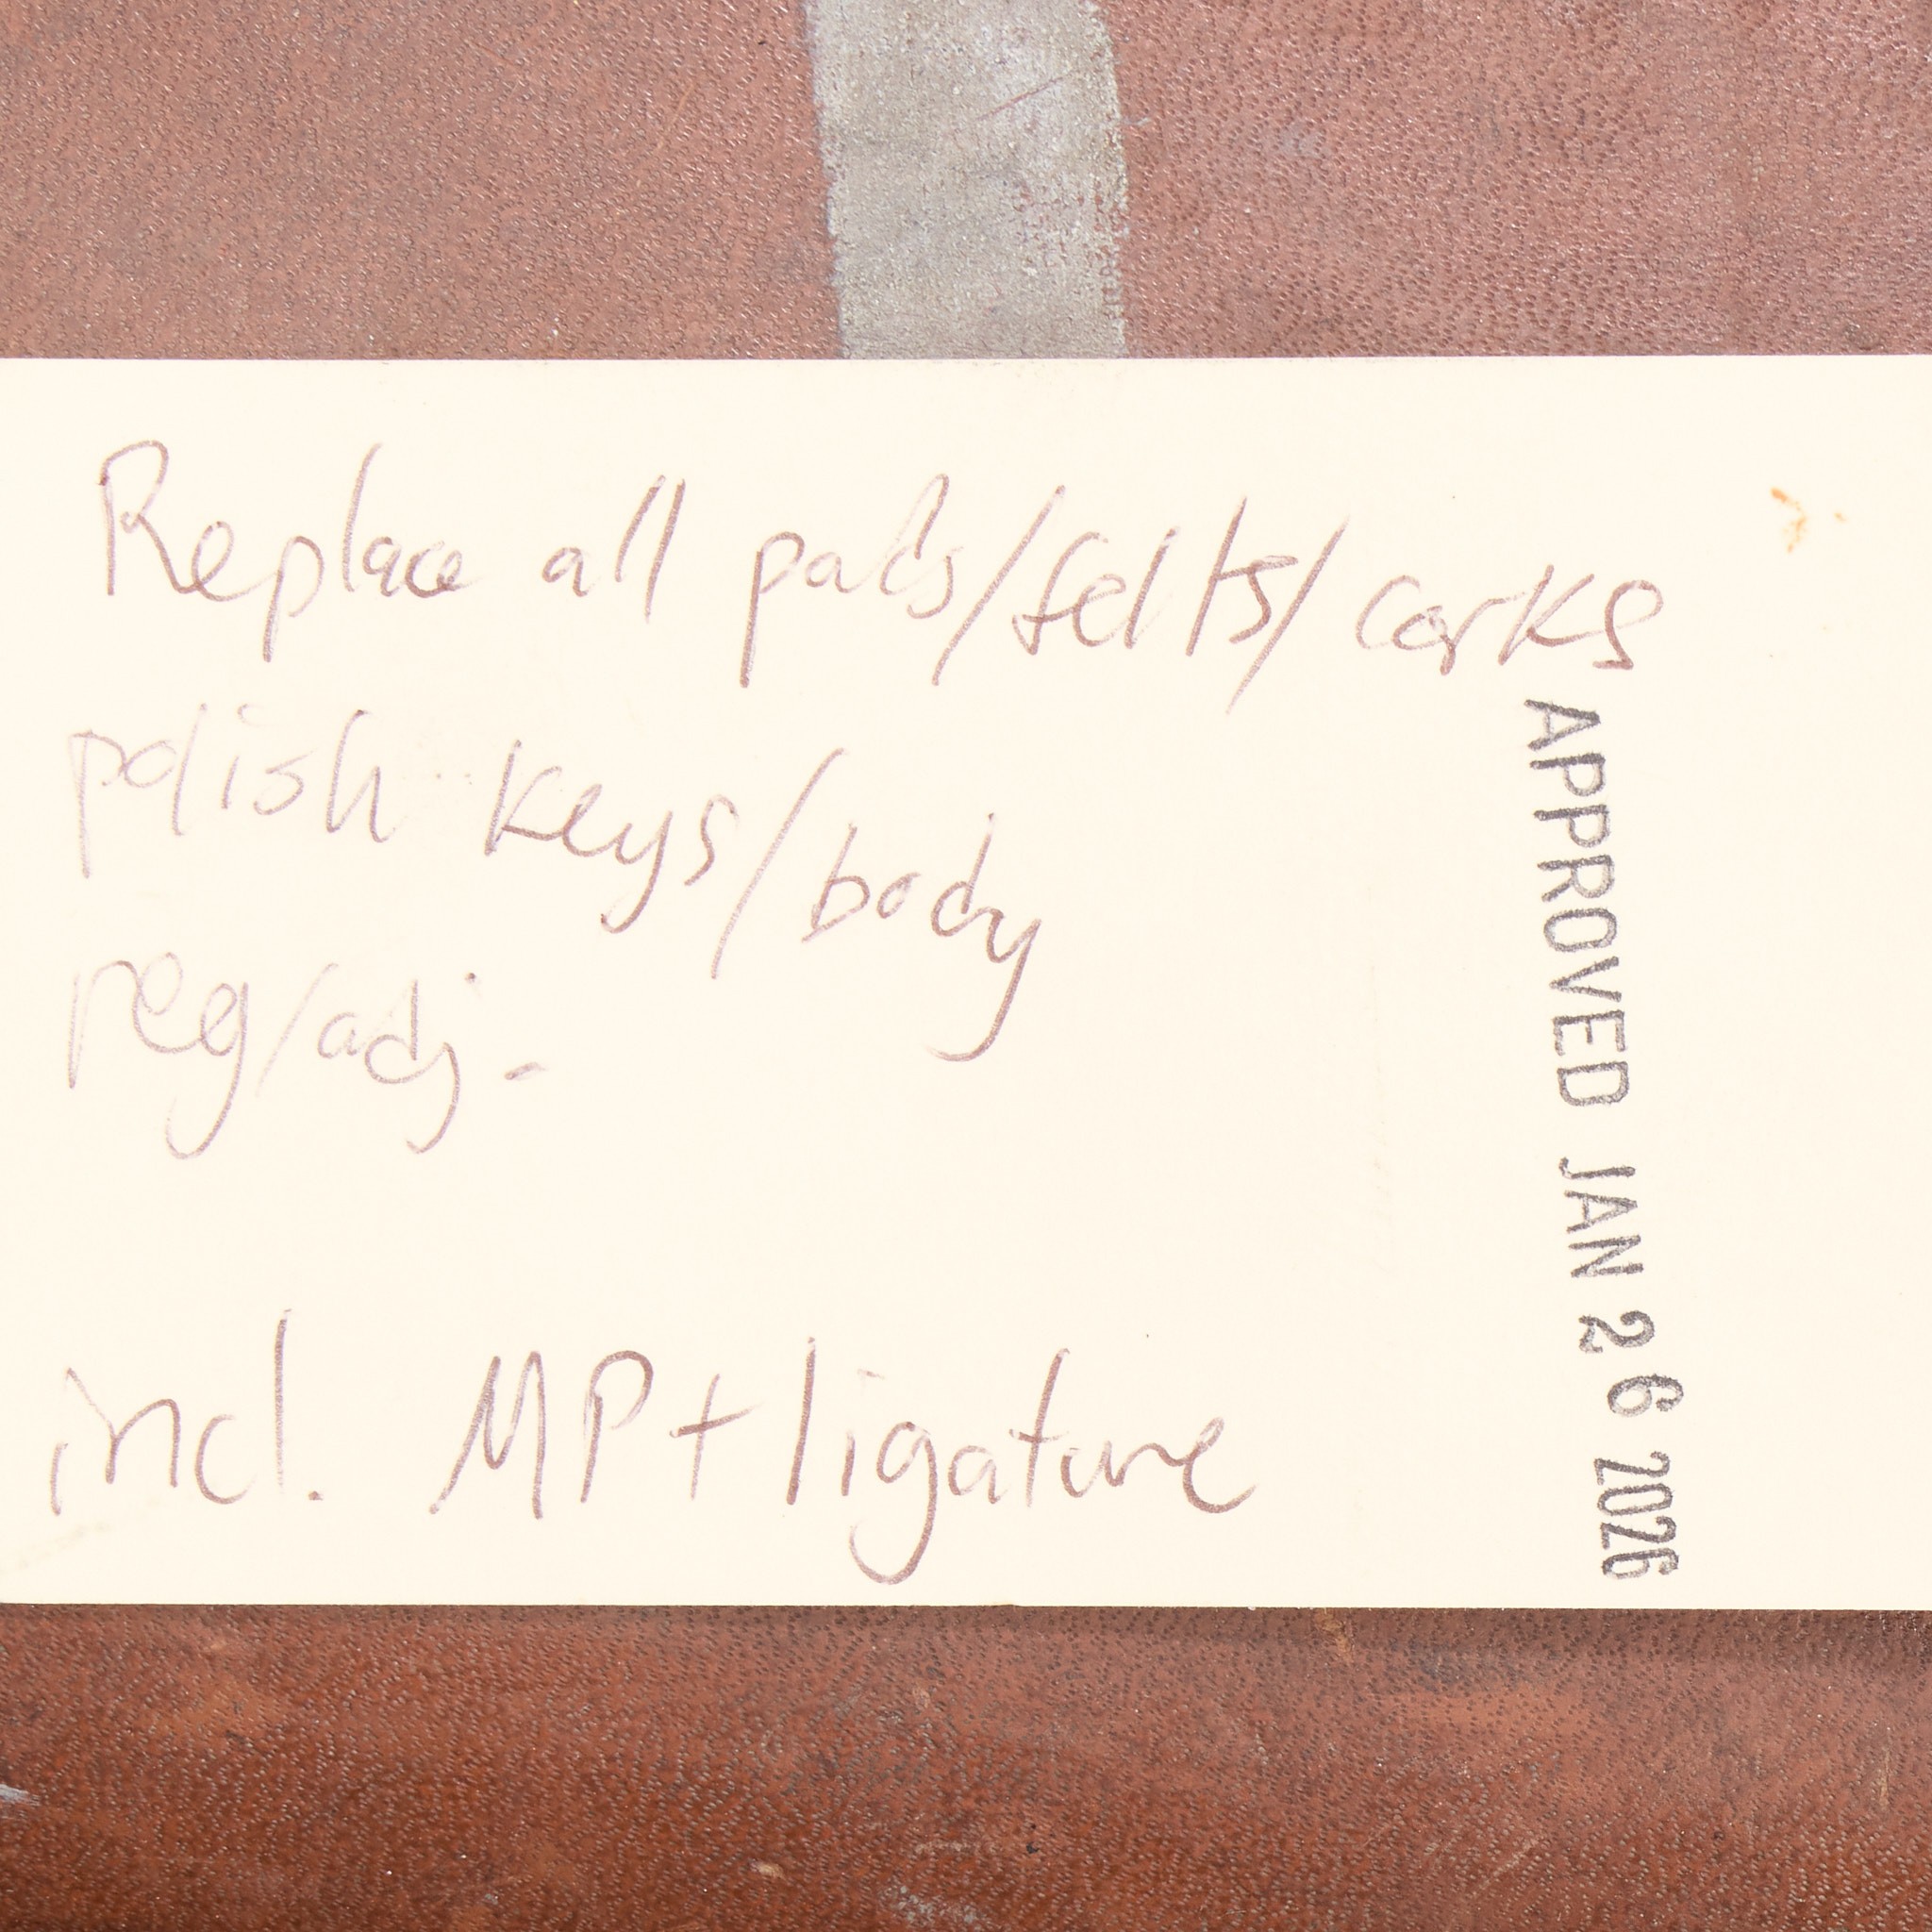 Replace all pads/felts/corks
polish keys/body
reg/adj.
incl. MP + ligature
APPROVED JAN 26 2026